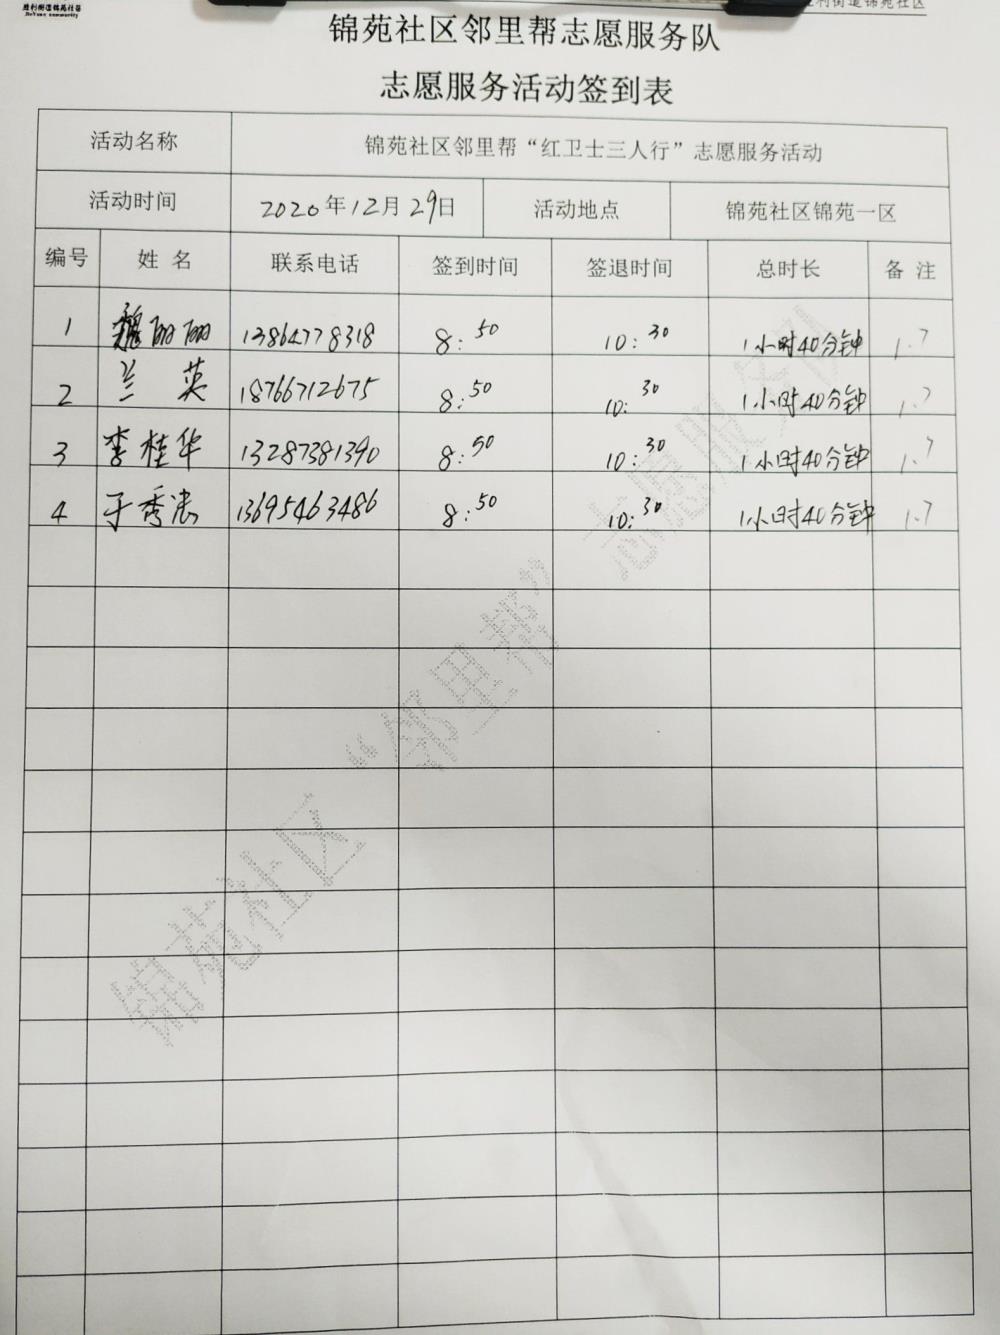 胜利街道锦苑社区
胜利街道锦苑社区
锦苑社区邻里帮志愿服务队
志愿服务活动签到表
活动名称 锦苑社区邻里帮“红卫士三人行”志愿服务活动
活动时间 2020年12月29日 活动地点 锦苑社区锦苑一区
编号 姓名 联系电话 签到时间 签退时间 总时长 备注
1 魏丽丽 13864778318 8:50 10:30 1小时40分钟 1.7
2 兰英 18766712675 8:50 10:30 1小时40分钟 1.7
3 李桂华 13287381390 8:50 10:30 1小时40分钟 1.7
4 于秀 13695463486 8:50 10:30 1小时40分钟 1.7
锦苑社区“邻里帮”志愿服务队